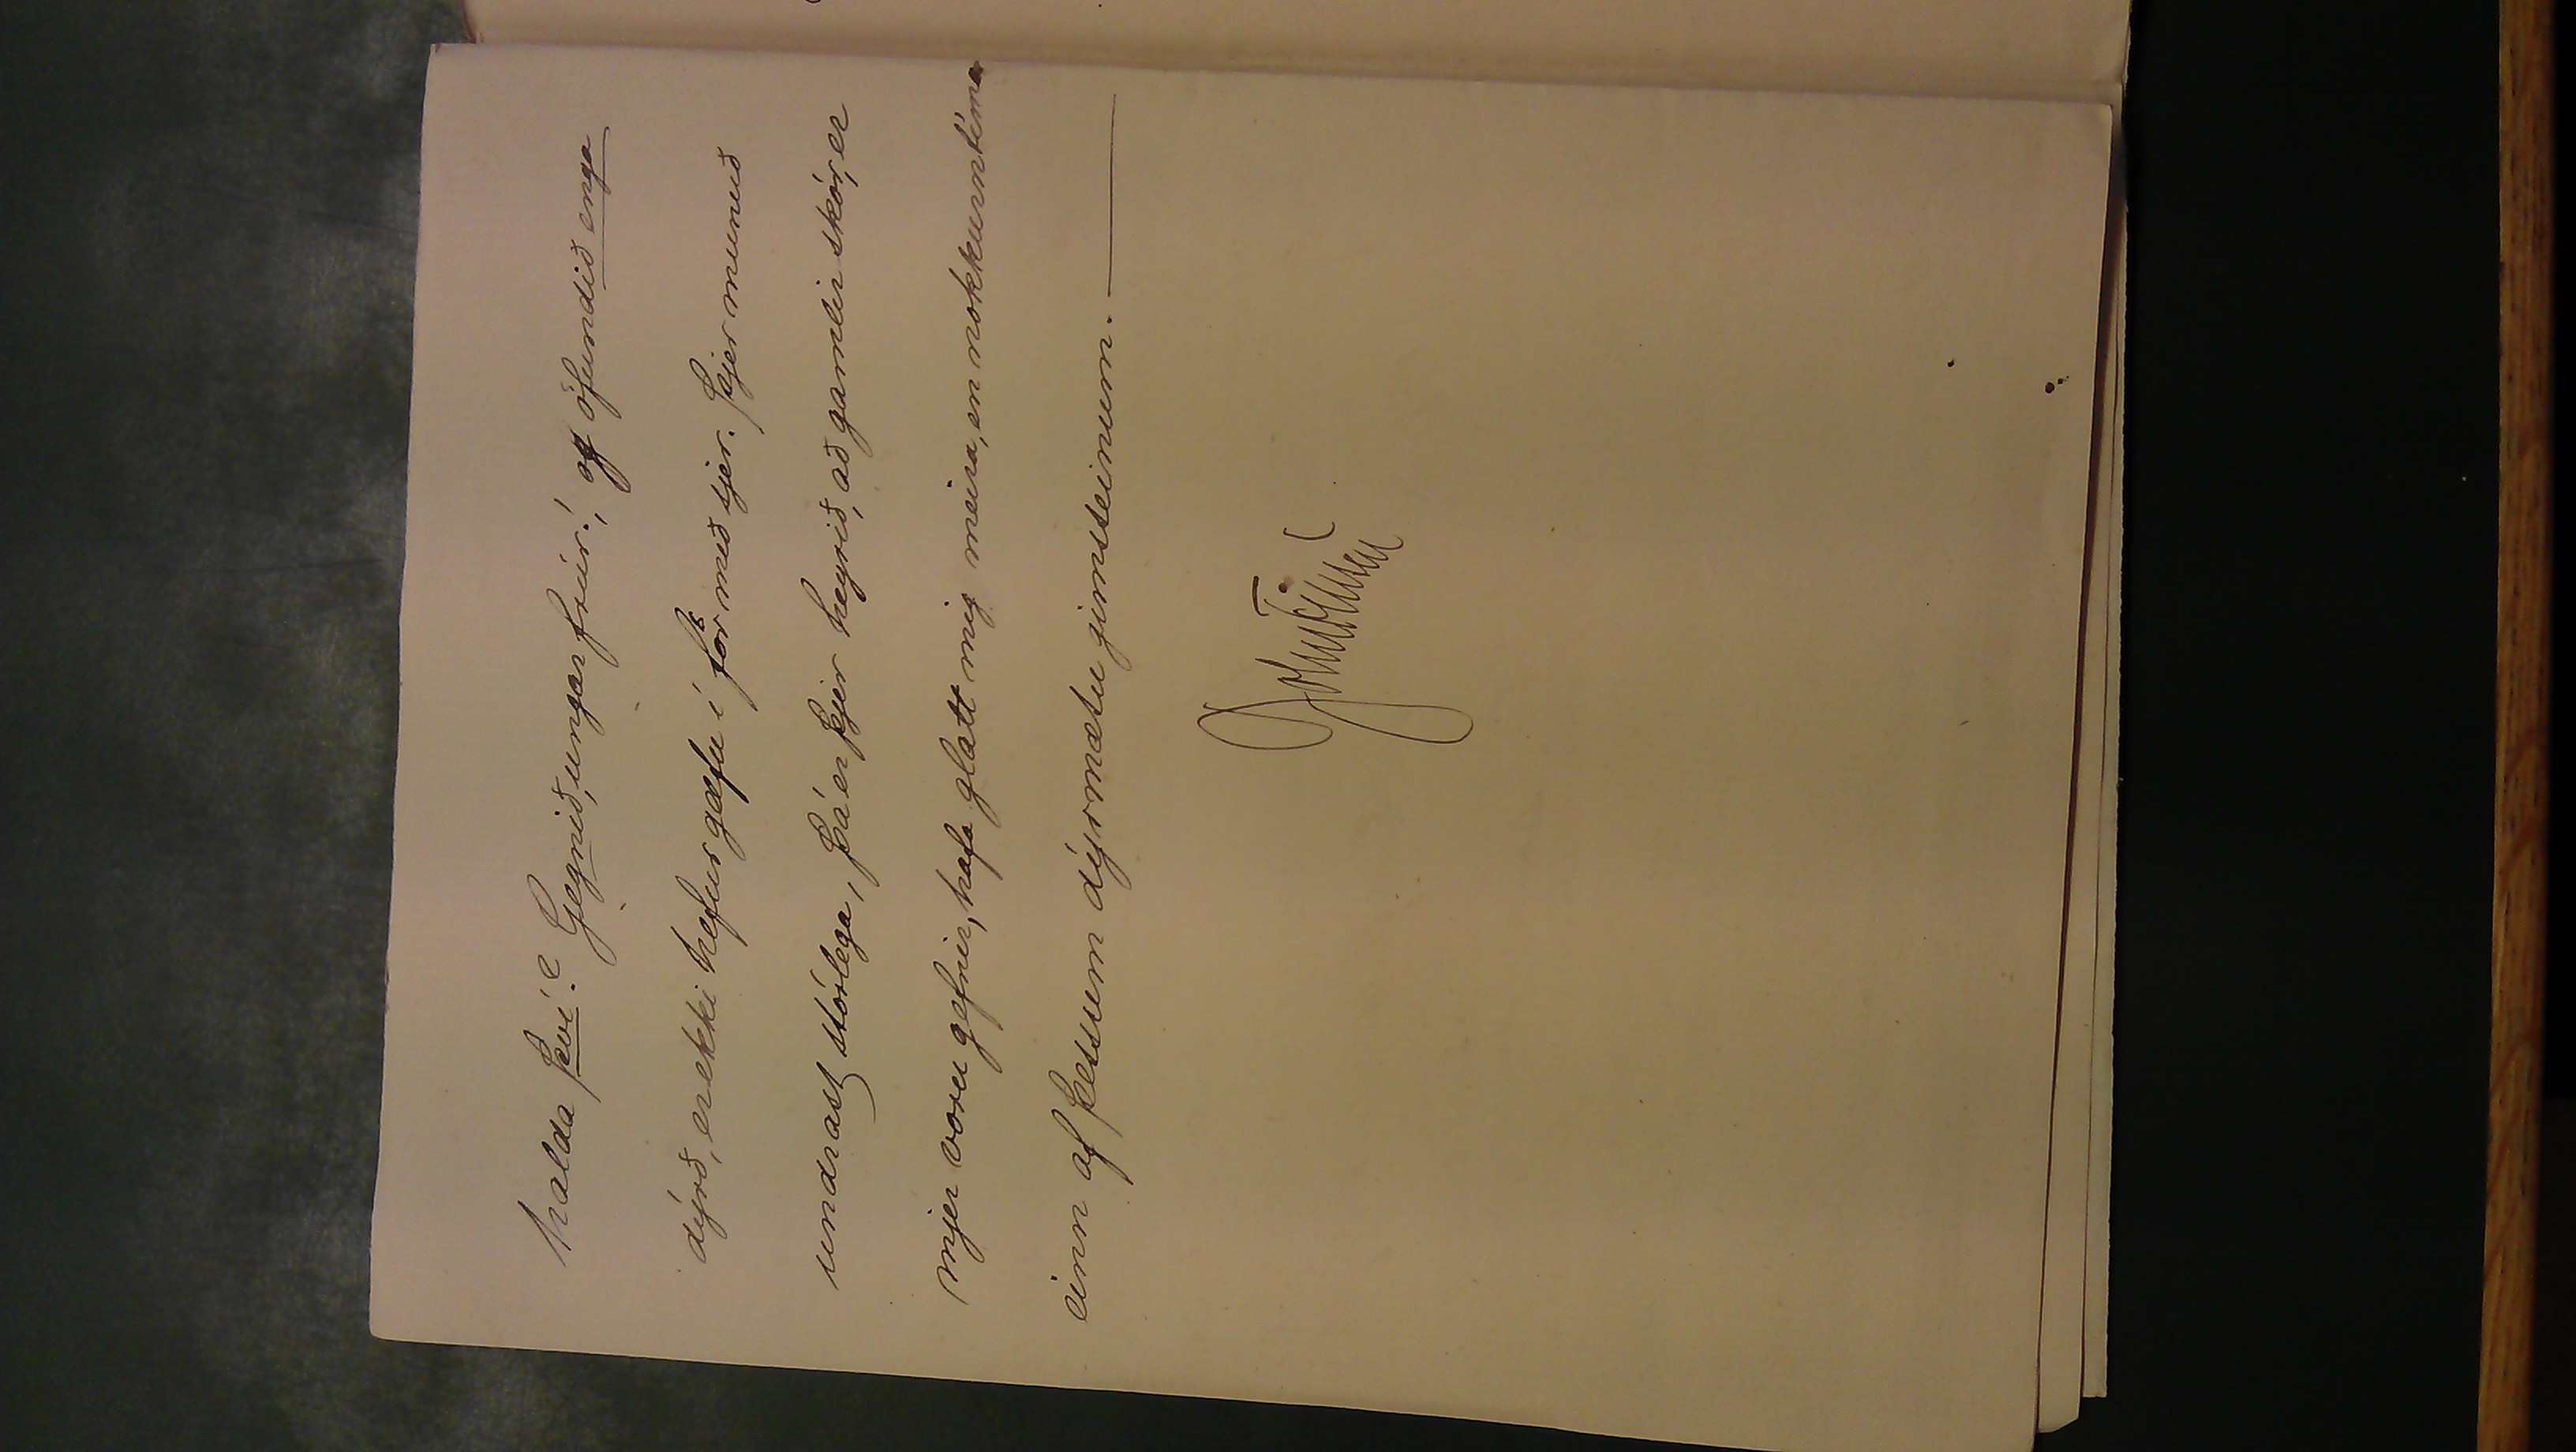 halda því? Gegnið, ungar frúr!, og öfundið enga
dýrð, er ekki hefur gæfu í för með sjer. Þjer munuð
undrast stórlega, þá er þjer heyrið, að gamlir skór, er
mjer voru gefnir, hafa glatt mig meira, en nokkurntíma
einn af þessum dýrmætu gimsteinum.